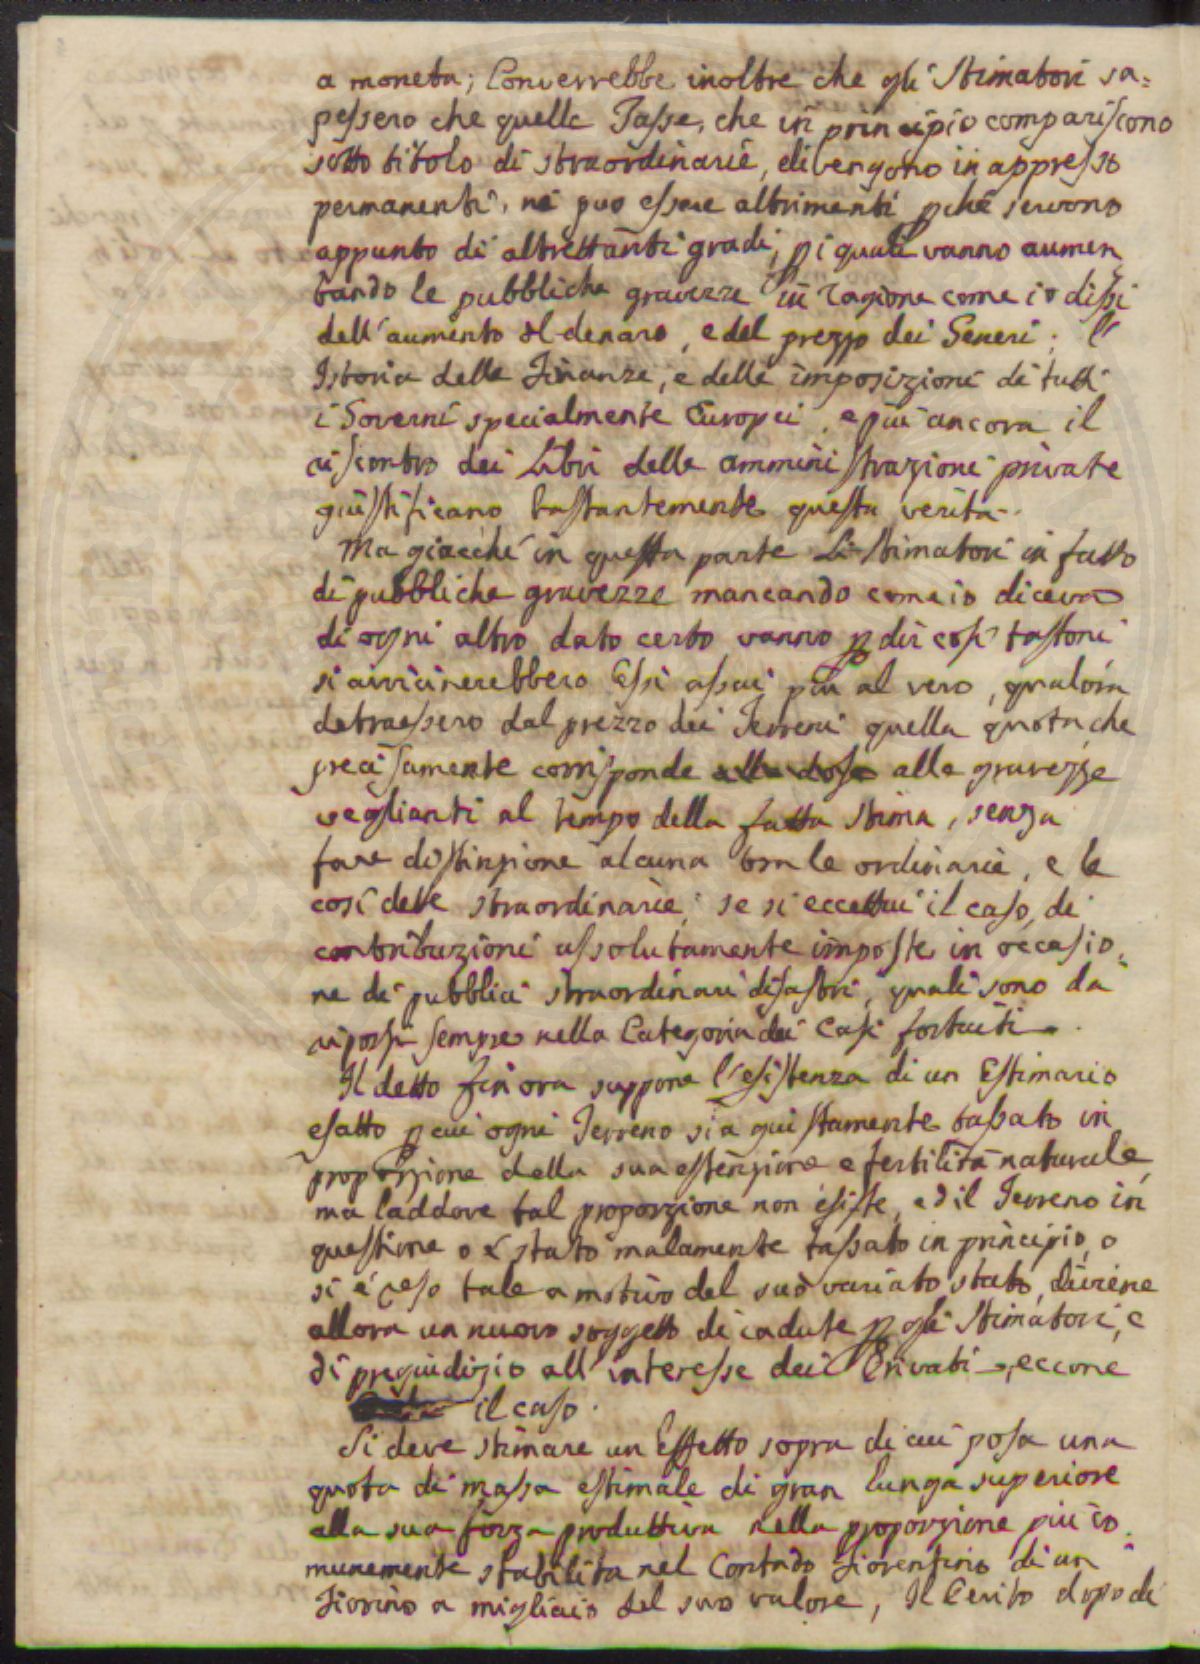 a moneta; Converrebbe inoltre che gli Stimatori sa=
pessero che quelle Tasse, che in principio compariscono
sotto titolo di straordinarie, divengono in appresso
permanenti, né può essere altrimenti pchè servono
appunto di altrettanti gradi, p i quali vanno aumen
tando le pubbliche gravezze in ragione come io dissi
dell'aumento del denaro, e del prezzo dei Generi; l'
Istoria delle Finanze, e delle imposizioni di tutti
i Governi specialmente Europei, e più ancora il
riscontro dei Libri delle amministrazioni private
giustificano bastantemente questa verità.
Ma giacchè in questa parte Li Stimatori in fatto
di pubbliche gravezze mancando come io diceva
di ogni altro dato certo vanno p dir così tastoni
si avvicinerebbero Essi assai più al vero, qualora
detraessero dal prezzo dei Terreni quella quota, che
precisamente corrisponde alle gravezze
veglianti al tempo della fatta stima, senza
fare distinzione alcuna tra le ordinarie, e le
così dette straordinarie, se si eccettui il caso, di
contribuzioni assolutamente imposte in occasio=
ne di pubblici straordinari disastri, quali sono da
riporsi sempre nella Categoria dei Casi fortuiti.
Il detto fin ora suppone l'esistenza di un Estimario
esatto p cui ogni Terreno sia giustamente tassato in
proporzione della sua estenzione e fertilità naturale,
ma laddove tal proporzione non esiste, ed il Terreno in
questione o è stato malamente tassato in principio, o
si è reso tale a motivo del suo variato stato, diviene
allora un nuovo soggetto di cadute p gli Stimatori, e
di pregiudizio all'interesse dei Privati, eccone
il caso.
Si deve stimare un Effetto sopra di cui posa una
quota di massa estimale di gran lunga superiore
alla sua forza produttiva nella proporzione più co=
munemente stabilita nel Contado Fiorentino di un
Fiorino a migliaio del suo valore, Il Perito dopo di